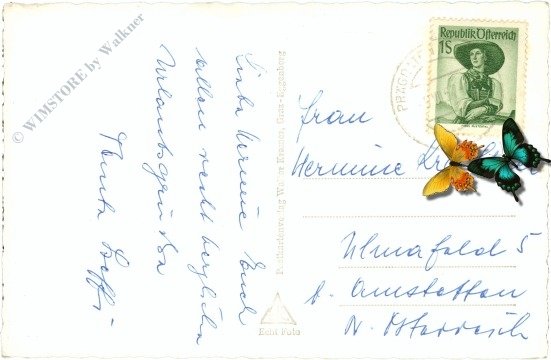 © WIMSTORE by Walkner
Liebe Hermine Euch
allen recht herzliche
Urlaubsgrüße
Tante Steffi
Postkartenverlag Walter Kramer, Graz-Eggenberg
Echt Foto
Republik Österreich
1S
Frau
Hermine
Ulmerfeld 5
b. Amstetten
N. Österreich